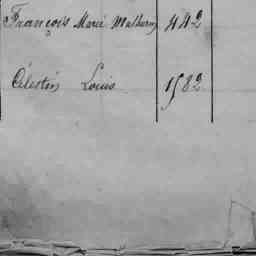 François Marie Malhurin 442
Célestin Louis 1582